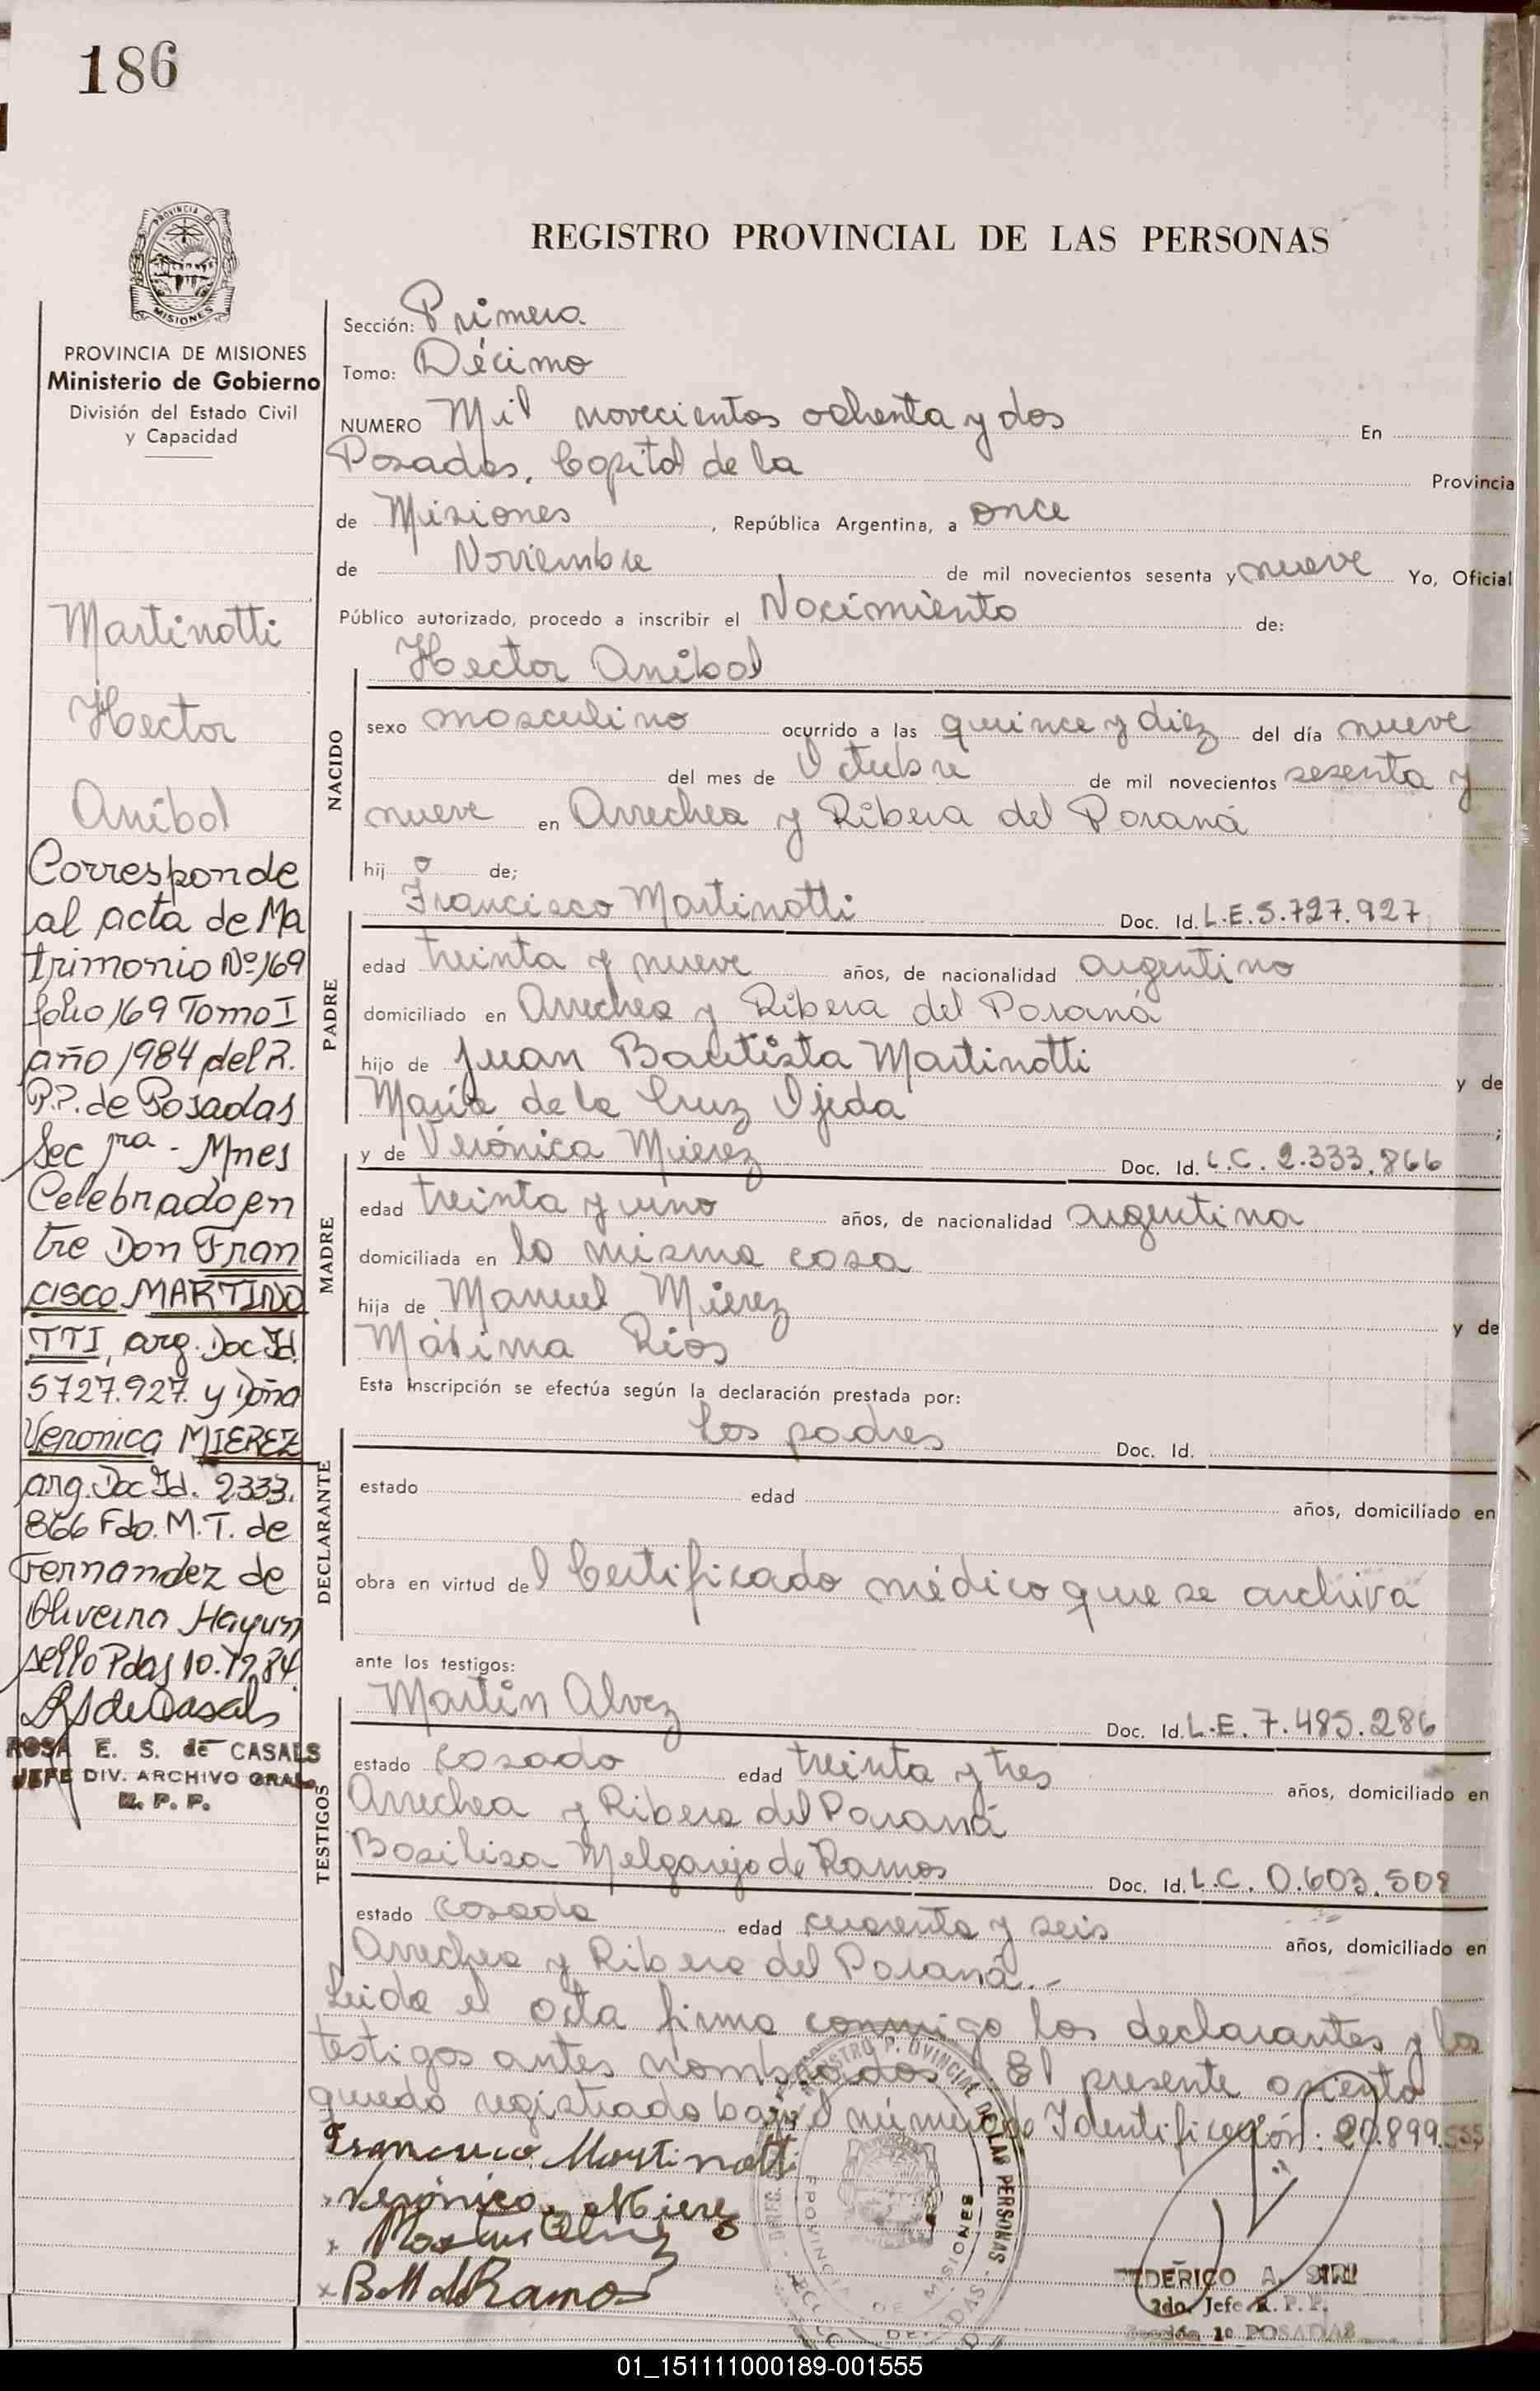 186
PROVINCIA DE
MISIONES
PROVINCIA DE MISIONES
Ministerio de Gobierno
División del Estado Civil
y Capacidad
Martinotti
Hector
Aníbal
Corresponde
al acta de Ma
trimonio Nº 169
folio 169 Tomo I
año 1984 del R.
P.P. de Posadas
Sec 1ra - Mnes
Celebrado en
tre Don Fran
cisco MARTINO
TTI, arg. Doc Id.
5727.927. y Doña
Veronica MIEREZ
arg. Doc Id. 2333.
866 Fdo. M.T. de
Fernandez de
Oliveira Hay un
sello Pdas 10.
ROSA E. S. de CASALS
JEFE DIV. ARCHIVO GRAL.
R. P. P.
REGISTRO PROVINCIAL DE LAS PERSONAS
Sección: Primera
Tomo: Décimo
NUMERO Mil novecientos ochenta y dos En
Posadas, Capital de la Provincia
de Misiones, República Argentina, a once
de Noviembre de mil novecientos sesenta y nueve Yo, Oficial
Público autorizado, procedo a inscribir el Nacimiento de:
Hector Anibal
NACIDO
sexo masculino ocurrido a las quince y diez del día nueve
del mes de Octubre de mil novecientos sesenta y
nueve en Arrechea y Ribera del Paraná
hijo de;
Francisco Martinotti Doc. Id. L.E. 5.727.927
PADRE
edad treinta y nueve años, de nacionalidad argentino
domiciliado en Arrechea y Ribera del Paraná
hijo de Juan Bautista Martinotti y de
María de la Cruz Ojeda ;
y de Verónica Mierez Doc. Id. L.C. 2.333.866
MADRE
edad treinta y uno años, de nacionalidad argentina
domiciliada en la misma casa
hija de Manuel Mierez y de
Máxima Rios
Esta inscripción se efectúa según la declaración prestada por:
los padres Doc. Id.
DECLARANTE
estado edad años, domiciliado en
obra en virtud del Certificado médico que se archiva
ante los testigos:
Martin Alvez Doc. Id. L.E. 7.485.286
TESTIGOS
estado casado edad treinta y tres años, domiciliado en
Arrechea y Ribera del Paraná
Basilisa Melgarejo de Ramos Doc. Id. L.C. 0.603.508
estado casada edad cuarenta y seis años, domiciliado en
Arrechea y Ribera del Paraná.-
Leída el acta firma conmigo los declarantes y los
testigos antes nombrados. El presente asiento
queda registrado bajo el número de Identificación: 20.899.555
Francisco Martinotti
Verónica Mierez
Martin Alvez
B M de Ramos
REGISTRO PROVINCIAL DE LAS PERSONAS
PROVINCIA DE MISIONES
FEDERICO A. SIRI
2do. Jefe R. P. P.
Sección 1º POSADAS
01_151111000189-001555